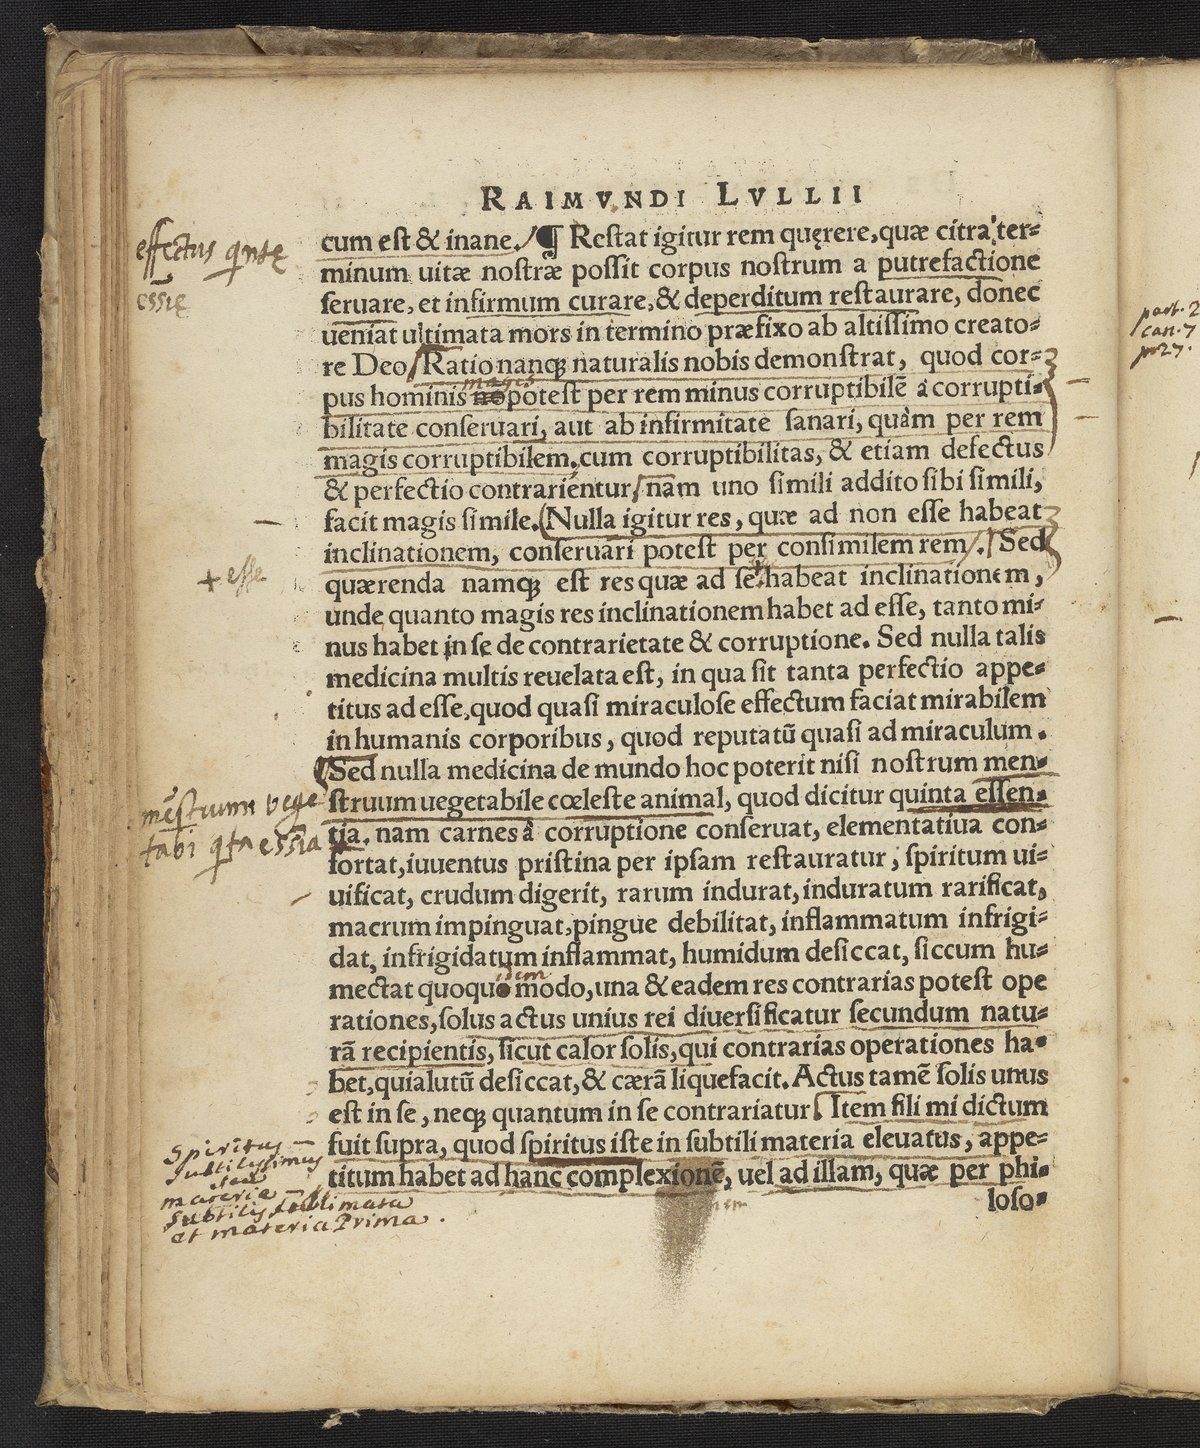 RAIMVNDI LVLLII
effectus qntę
essię
cum est & inane./¶ Restat igitur rem quęrere, quæ citra ter-
minum uitæ nostræ possit corpus nostrum a putrefactione
seruare, et infirmum curare, & deperditum restaurare, donec
ueniat ultimata mors in termino præfixo ab altissimo creato-
re Deo/ Ratio nanq; naturalis nobis demonstrat, quod cor-
magis
pus hominis no potest per rem minus corruptibilē à corrupti-
bilitate conseruari, aut ab infirmitate sanari, quàm per rem
magis corruptibilem, cum corruptibilitas, & etiam defectus
& perfectio contrarientur, nam uno simili addito sibi simili,
facit magis simile. (Nulla igitur res, quæ ad non esse habeat
inclinationem, conseruari potest per consimilem rem/. Sed
+ esse
quærenda namq; est res quæ ad se + habeat inclinationem,
unde quanto magis res inclinationem habet ad esse, tanto mi-
nus habet in se de contrarietate & corruptione. Sed nulla talis
medicina multis reuelata est, in qua sit tanta perfectio appe-
titus ad esse, quod quasi miraculose effectum faciat mirabilem
in humanis corporibus, quod reputatũ quasi ad miraculum.
Sed nulla medicina de mundo hoc poterit nisi nostrum men-
mēstruum vege
tabi qta essia
struum uegetabile cœleste animal, quod dicitur quinta essen-
tia. nam carnes à corruptione conseruat, elementatiua con-
fortat, iuuentus pristina per ipsam restauratur, spiritum ui-
uificat, crudum digerit, rarum indurat, induratum rarificat,
macrum impinguat, pingue debilitat, inflammatum infrigi-
dat, infrigidatum inflammat, humidum desiccat, siccum hu-
idem
mectat quoquo modo, una & eadem res contrarias potest ope
rationes, solus actus unius rei diuersificatur secundum natu-
rã recipientis, sicut calor solis, qui contrarias operationes ha-
bet, quia lutũ desiccat, & cærã liquefacit. Actus tamē solis unus
est in se, neq; quantum in se contrariatur. Item fili mi dictum
fuit supra, quod spiritus iste in subtili materia eleuatus, appe-
titum habet ad hanc complexionē, uel ad illam, quæ per phi-
loso-
Spiritus
subtilissimus
seu
materia
subtilis sublimata
et materia Prima.
part. 2
can. 7
27.